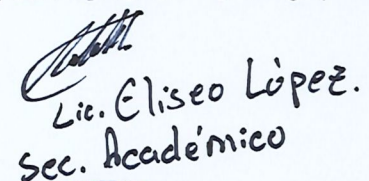 Lic. Eliseo López.
Sec. Académico